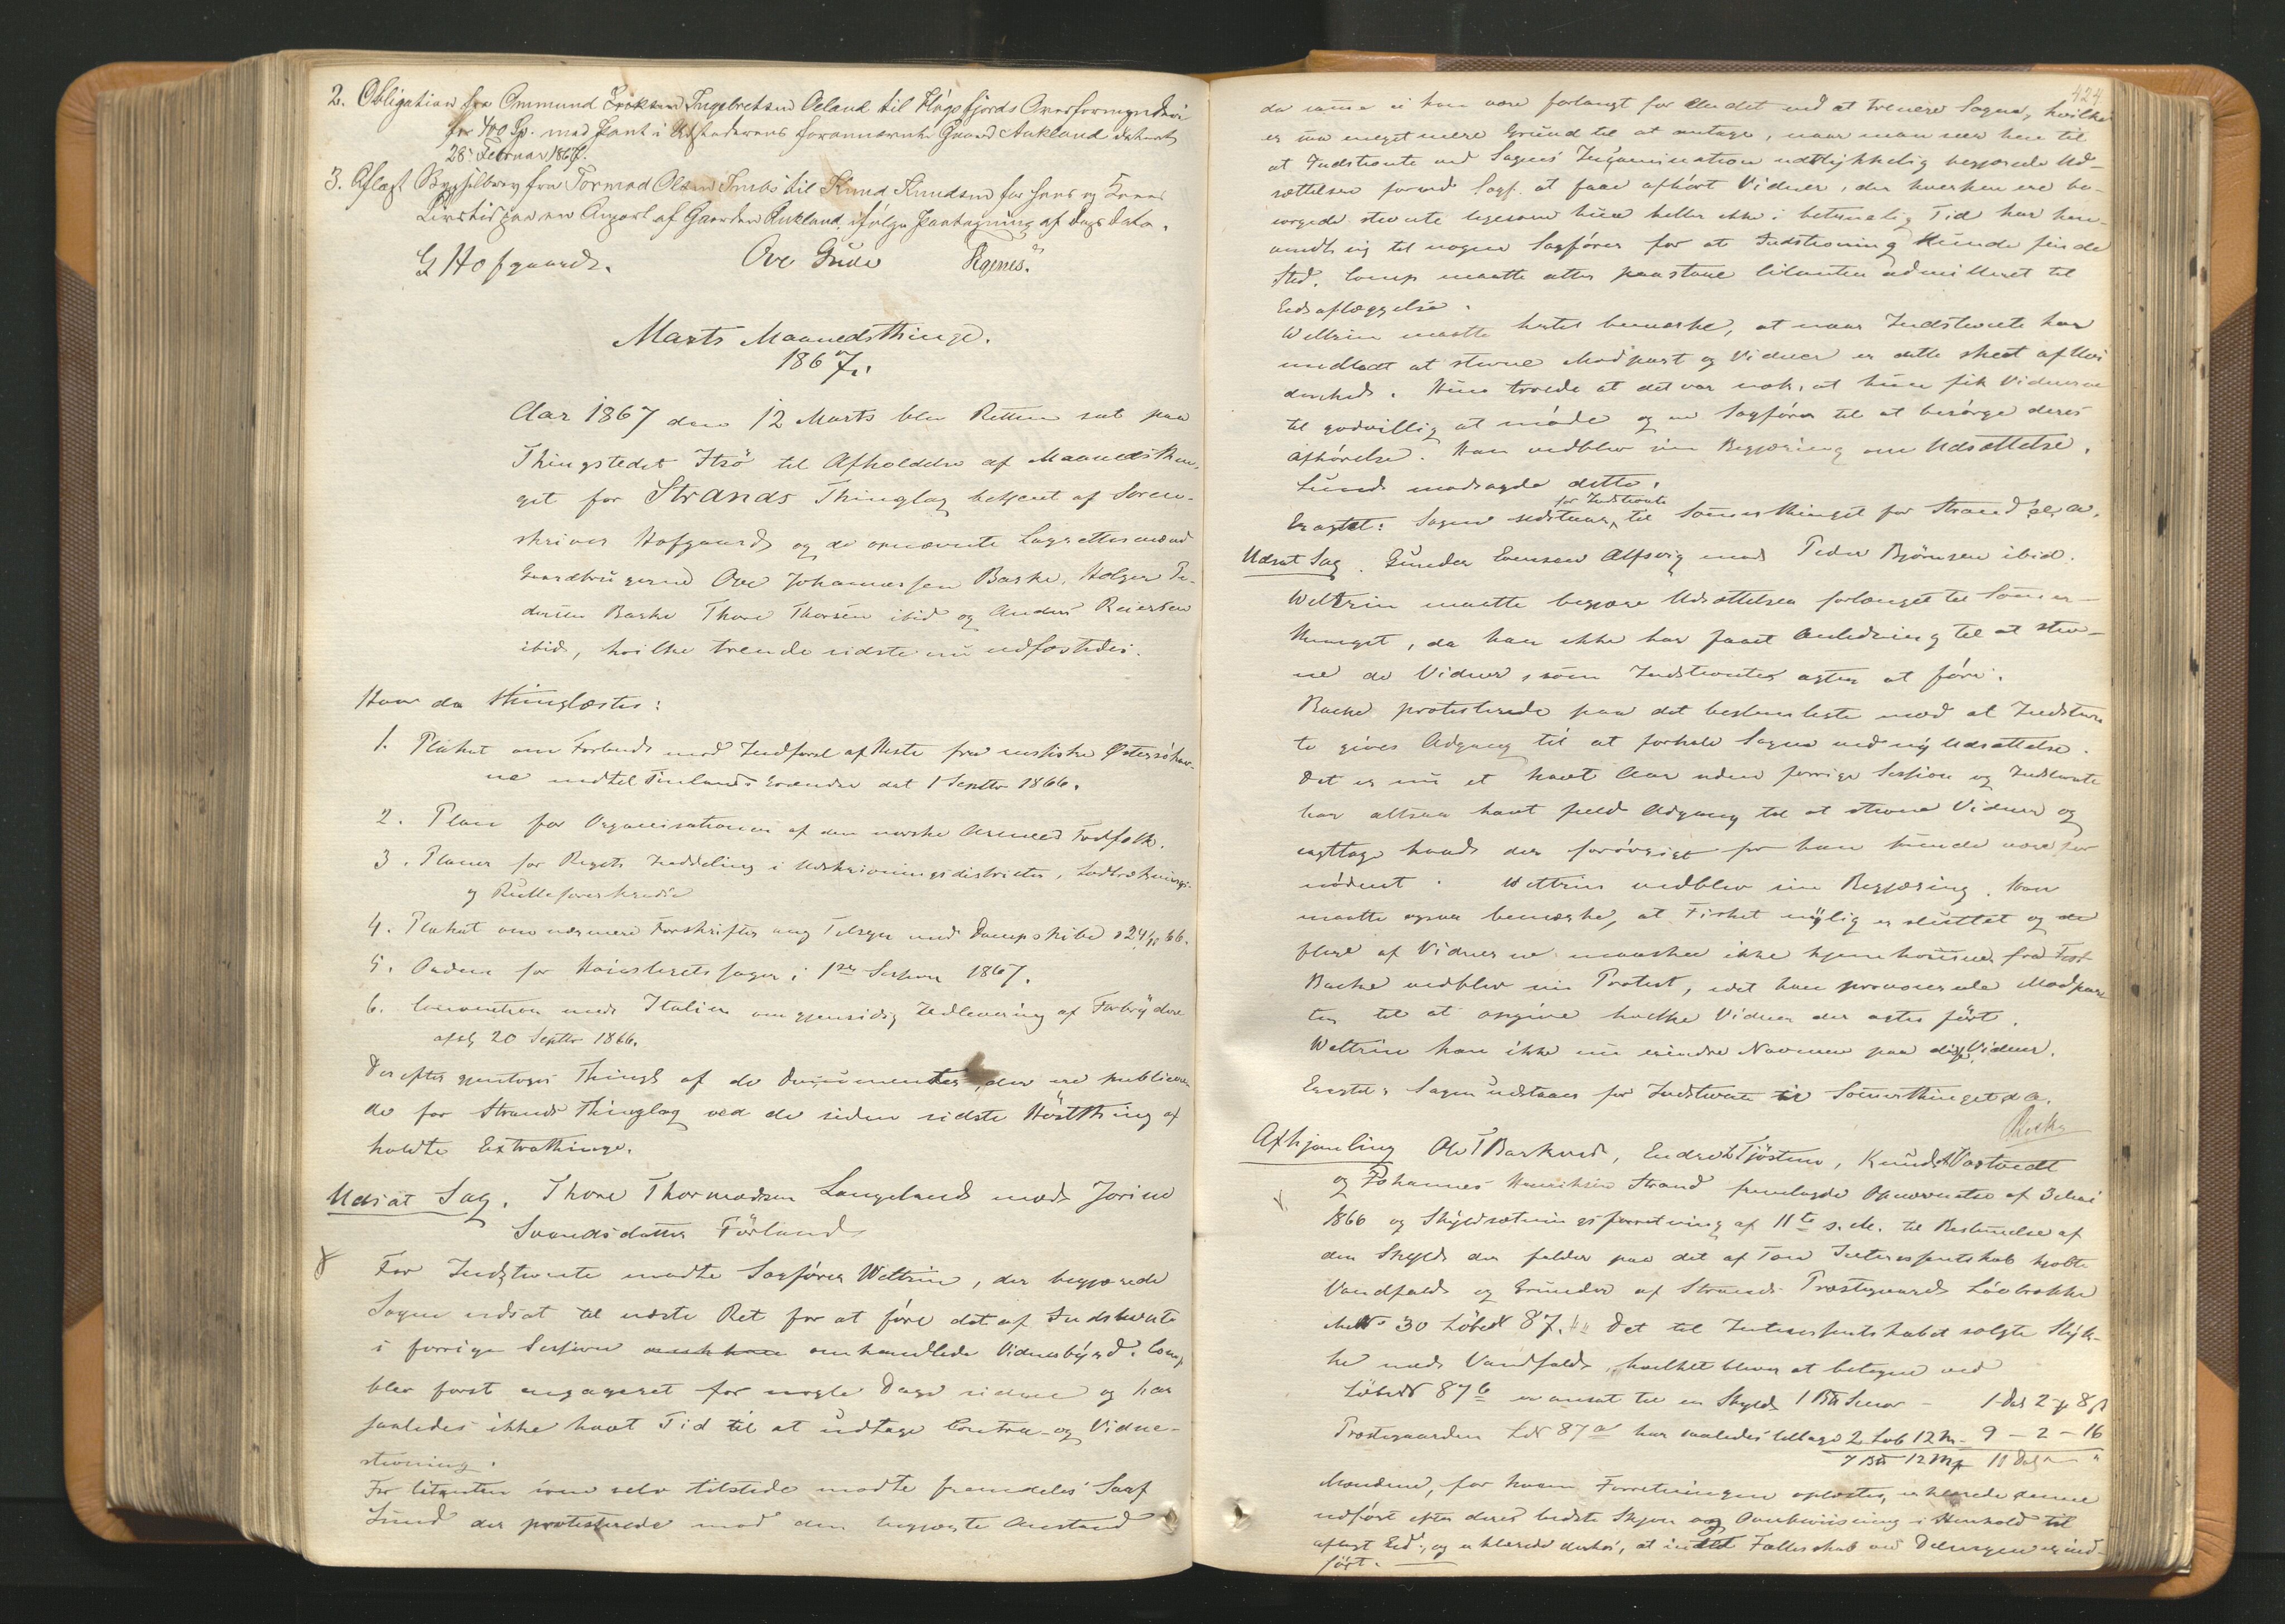 2. Obligation fra Ommund Ingebretsen Oeland til Høgsfjords Overformynderi
for 400 Sp. med Pant i Udstederens forannævnte Gaard Aukland dateret
28. Februar 1867.
3. Aflæst Bygselbrev fra Tormod Olsen til Knud Knudsen for hans og Kones
Livstid paa en Anpart af Gaarden Aukland, ifølge Paategning af Dags Dato.
G Hofgaard. Ove Gude
Marts Maanedsthinge.
1867.
Aar 1867 den 12 Marts blev Retten sat paa
Thingstedet Itsø til Afholdelse af Maanedsthin-
get for Strands Thinglag betjent af Soren-
skriver Hofgaard og de opnævnte Laugrettesmænd
Gaardbrugerne Ove Johannessen Barke, Holger Pe-
dersen Barke Thore Thorsen ibid og Anders Reiersen
ibid, hvilke trende sidste nu edfæstedes.
Hvor da thinglæstes:
1. Plakat om Forbud mod Indførsel af Heste fra russiske Østersøhav-
ne indtil Finlands Grændse dat 1 Septbr 1866.
2. Plan for Organisationen af den norske Armees Fodfolk.
3. Planer for Rigets Inddeling i Udskrivningsdistricter, Lodtræknings-
og Rulleførerkredse
4. Plakat om nærmere Forskrifter ang Tilsyn med Dampskibe 24/11 66.
5. Orden for Høiesteretssager i 1ste Session 1867.
6. Convention med Italien om gjensidig Udlevering af Forbrydere
afsl 20 Septbr 1866.
Derefter gjentoges Thingl af de Documenter, der ere publicere-
de for Strands Thinglag ved de siden sidste Høstthing af
holdte Extrathinge.
Udsat Sag. Thore Thormodsen Langeland mod Jorine
Svendsdatter Førland
For Indstevnte mødte Sagfører Weltzin, der begjærede
Sagen udsat til næste Ret for at føre det af Indstevnte
i forrige Session omhandlede Vidnesbyrd. Comp
blev først engageret for nogle Dage siden og har
saaledes ikke havt Tid til at udtage Contra- og Vidne-
stevning.
For Citanten som selv tilstede mødte fremdeles Sagf
Lund der protesterede mod den begjærte Anstand
424
da samme ei kan være forlangt for Andet end at trenere Sagen, hvilket
er saa meget mere Grund til at antage, naar man seer hen til
at Indstevnte ved Sagens Incamination udtrykkelig begjærede Ud-
sættelse formed. Sagf. at faae afhørt Vidner, der hverken ere be-
sørgede stevnte ligesom hun heller ikke i betimelig Tid har hen-
vendt sig til nogen Sagfører for at Indstevning kunde finde
Sted. Comp maatte atter paastaae Citanten admitteret til
Eedsaflæggelse.
Weltzin maatte hertil bemærke, at naar Indstevnte har
undladt at stevne Modpart og Vidner er dette skeet af Uvi
denhed. Hun troede at det var nok, at hun fik Vidnerne
til godvillig at møde og en Sagfører til at besørge deres
Afhørelse. Han vedblev sin Begjæring om Udsættelse.
Lund modsagde dette.
for Indstevnte
Eragtet: Sagen udstaaer til Sommerthinget for Strand d. A.
Udsat Sag. Gunder Evensen Alsvig mod Peder Bjørnsen ibid.
Weltzin maatte begjære Udsættelsen forlænget til Sommer-
thinget, da han ikke har faaet Anledning til at stev-
ne de Vidner, som Indstevnte agter at føre.
Backe protesterede paa det bestemteste mod at Indstevn
te gives Adgang til at forhale Sagen ved ny Udsættelse.
Det er nu et halvt Aar siden forrige Session og Indstevnte
har altsaa havt fuld Adgang til at stevne Vidner og
iagttage hvad der forøvrigt for ham kunde være for
nødent. Weltzin vedblev sin Begjæring. Han
maatte ogsaa bemærke, at Fisket nylig er sluttet og de
flere af Vidnerne maaskee ikke hjemkomne fra Fisk
Backe vedblev sin Protest, idet han provocerede Modpar
ten til at angive hvilke Vidner der agtes ført.
Weltzin kan ikke nu erindre Navnene paa disse Vidner.
Eragtet: Sagen udstaaer for Indstevnte til Sommerthinget d A.
Afhjemling Ole T Barkved, Endre Tjøstem, Knud Vostvedt
og Johannes Henriksen Strand fremlagde Opnævnelse af 3 Mai
1866 og Skyldsætningsforretning af 11te s. M. til Bestemmelse af
den Skyld der falder paa det af Tau Interessentskab kjøbte
Vandfald og Grunder af Strands Præstegaard Løvbrække
MNo 30 LøbeN 87. Det til Interessentskabet solgte Styk-
ke med Vandfald, hvilket bliver at betegne ved
LøbeN 87b er ansat til en Skyld 1 Bth Smør - 1 Dal 2 ₰ 8 ß
Præstegaarden LN 87a har saaledes tilbage 2 Løb 12 M. 9 - 2 - 16
11 Dal
Mændene, for hvem Forretningen oplæstes, erklærede denne
udført efter deres bedste Skjøn og Overbeviisning i Henhold til
aflagt Eed, og erklærede derhos, at intet Fællesskab ved Delingen er ind-
ført.